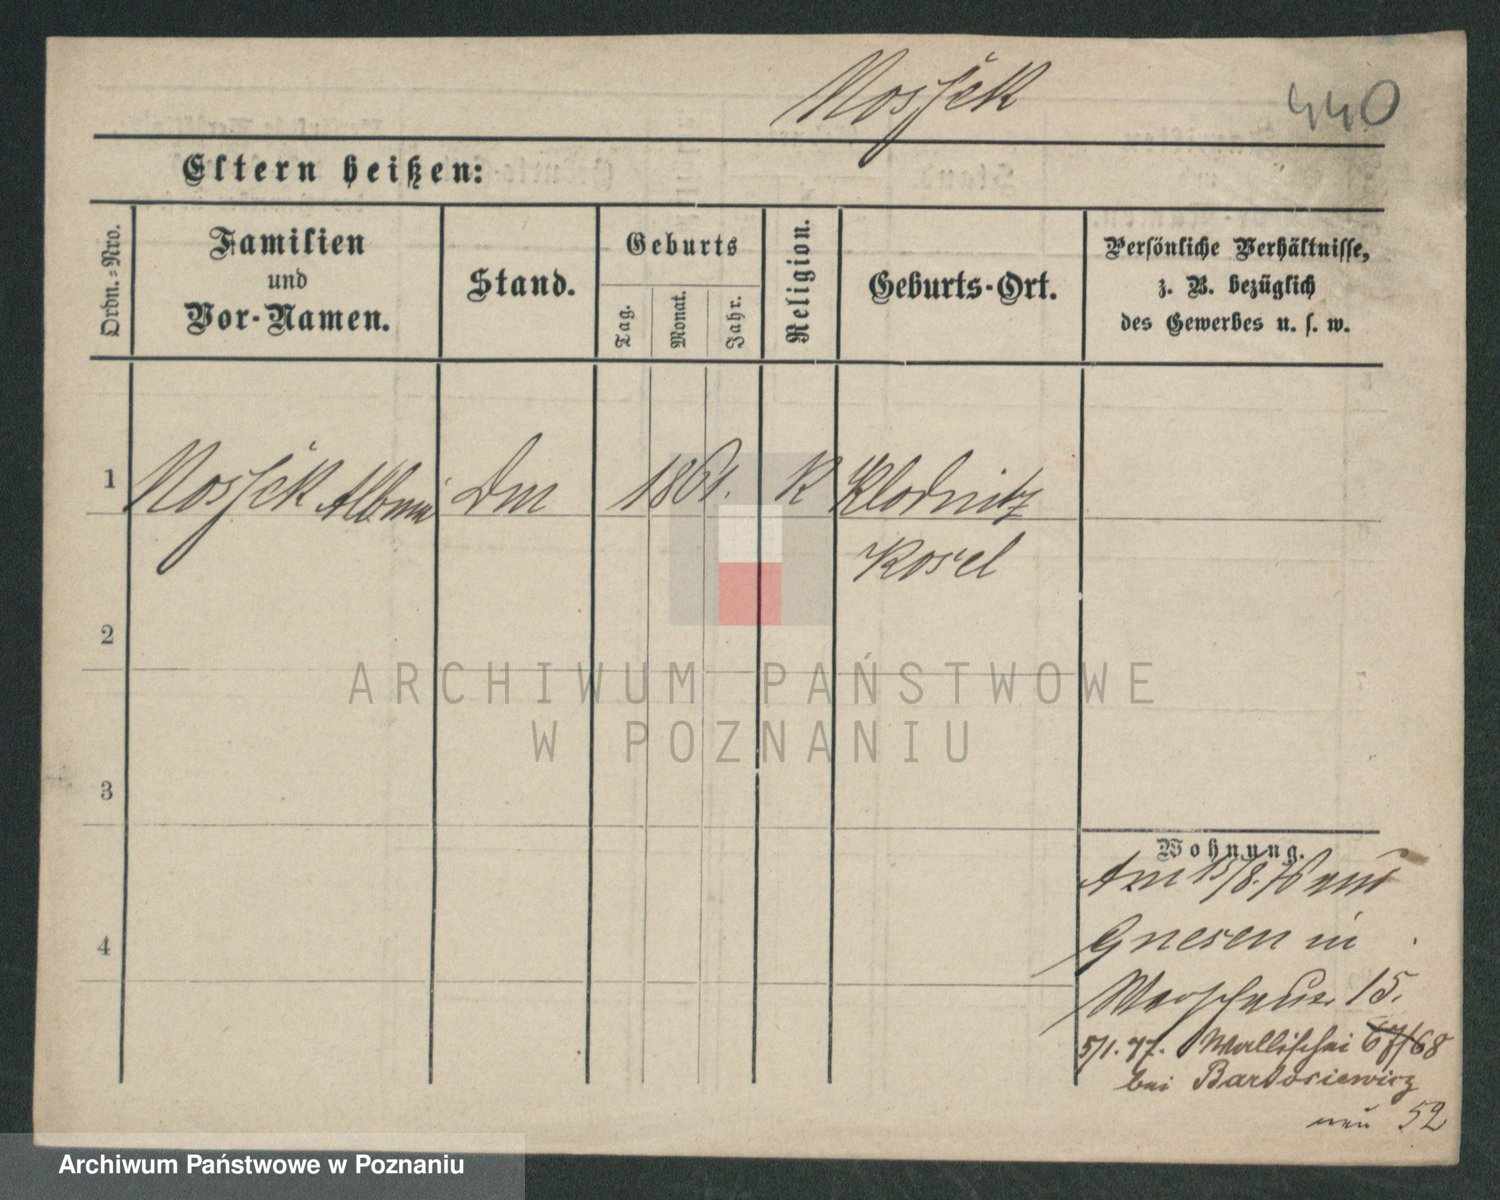 Mosſek
440
Eltern heißen:
Ordn.=Nro.
Familien
und
Vor-Namen.
Stand.
Geburts
Tag.
Monat.
Jahr.
Religion.
Geburts-Ort.
Persönliche Verhältnisse,
z. B. bezüglich
des Gewerbes u. s. w.
1 Mosſek 1861. K Klodnitz
Kosel
2
3
4
Wohnung.
Am 15/8. 76 aus
Gnesen in
15.
5/1. 77. Wallischei 67/68
bei Bartosiewicz
neu 52
ARCHIWUM PAŃSTWOWE
W POZNANIU
Archiwum Państwowe w Poznaniu